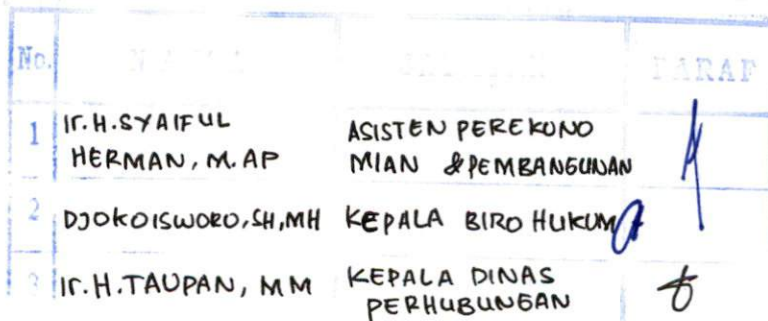 No. NAMA JABATAN PARAF
1 Ir. H. SYAIFUL HERMAN, M. AP ASISTEN PEREKONO MIAN & PEMBANGUNAN
2 DJOKOISWORO, SH, MH KEPALA BIRO HUKUM
3 Ir. H. TAUPAN, MM KEPALA DINAS PERHUBUNGAN